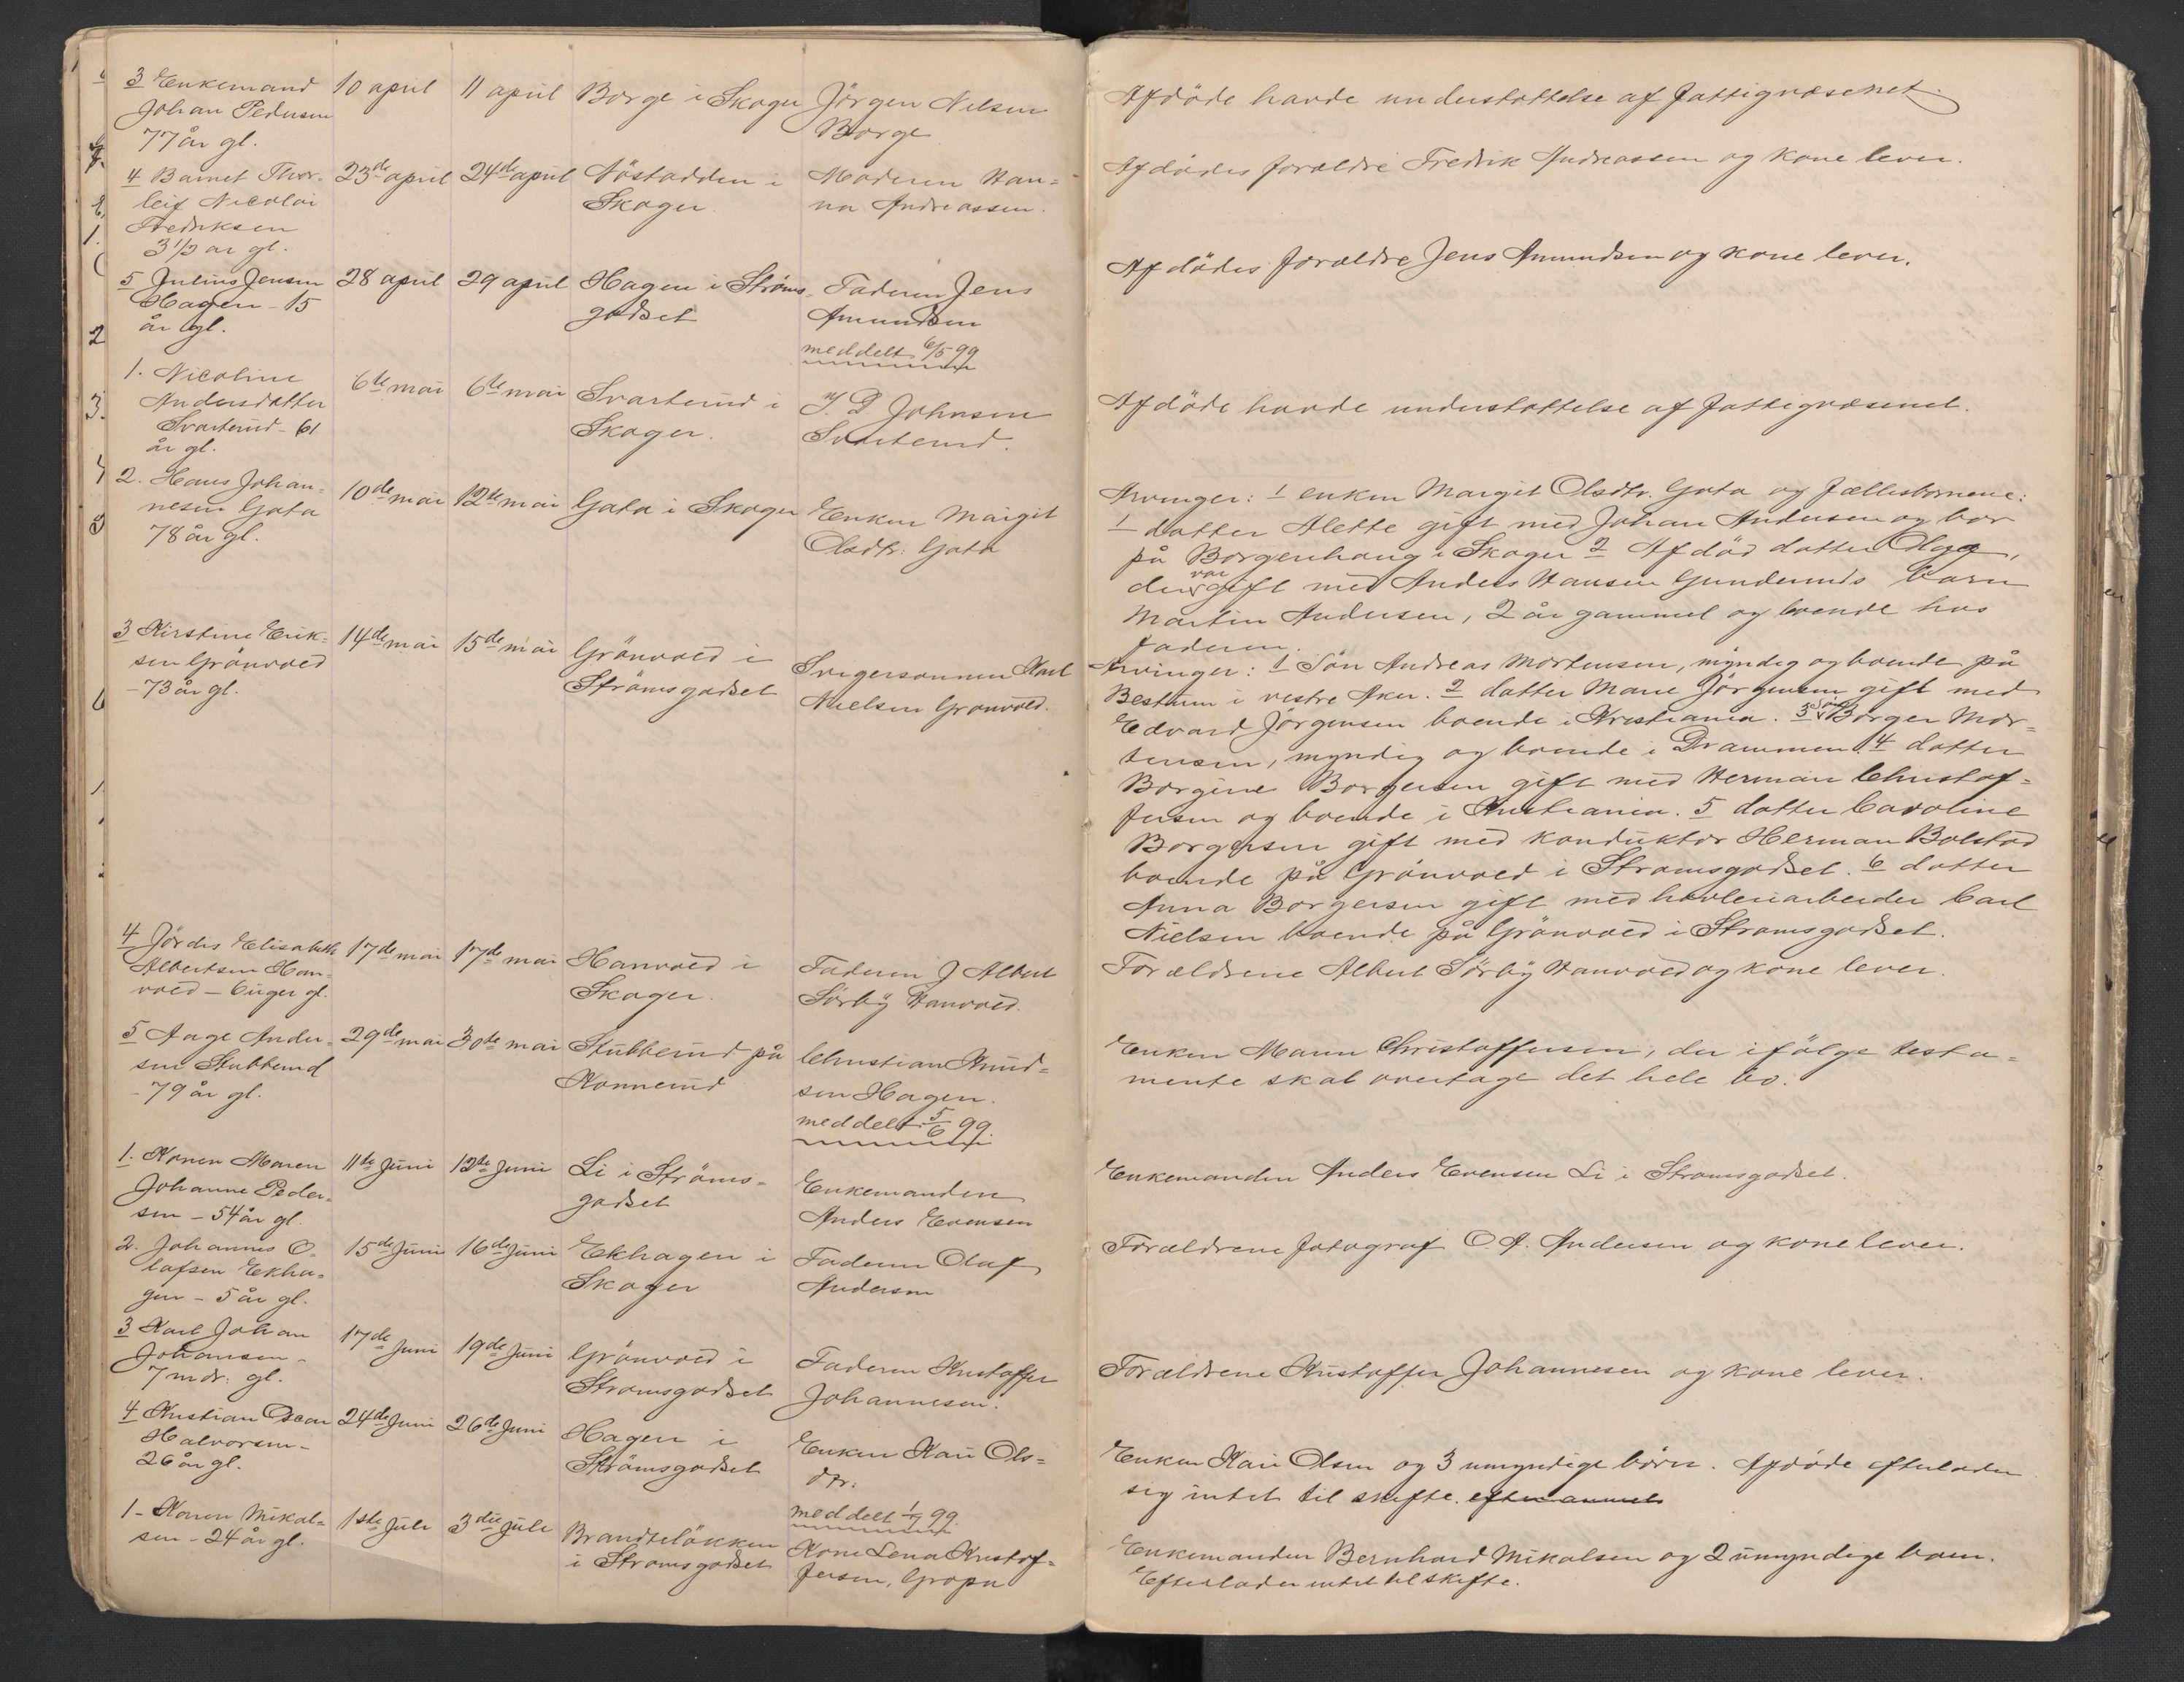 3 Enkemand
Johan Pedersen
77 år gl.
10 april
11 april
Borge i Skoger
Jörgen Nelsen
Borge
Afdöde havde understøttelse af fattigvæsenet.
4 Barnet Thor-
leif Nicolai
Fredriksen
3 1/2 år gl.
23de april
24de april
Nöstodden i
Skoger.
Moderen Han=
na Andreassen.
Afdödes forældre Fredrik Andreassen og kone lever.
5 Julius Jensen
Hagen - 15
år gl.
28 april
29 april
Hagen i Ströms-
godset
Faderen Jens
Amundsen
meddelt 6/5 99
Afdödes forældre Jens Amundsen og kone lever.
1. Nicoline
Andersdatter
Svarterud - 61
år gl.
6te mai
6te mai
Svarterud i
Skoger.
J. D Johnsen
Svarterud.
Afdöde havde understøttelse af fattigvæsenet.
2. Hans Johan-
nesen Gata
78 år gl.
10de mai
12te mai
Gata i Skoger
Enken Margit
Olsdtr: Gata
Arvinger: 1 enken Margit Olsdtr. Gata og fællesbørnene:
1 datter Alette gift med Johan Andersen og bor
på Borgenhaug i Skoger 2 Afdöd datter Olga,
der var gift med Anders Hansen Gunderuds barn
Martin Andersen, 2 år gammel og boende hos
faderen.
3 Kirstine Erik-
sen Grönvold
- 73 år gl.
14de mai
15de mai
Grönvold i
Strömsgodset
Svigersønnen Karl
Nielsen Grønvold.
Arvinger: 1 Sön Andreas Mortensen, myndig og boende på
Bestum i vestre Aker. 2 datter Marie Jörgensen gift med
Edvard Jörgensen boende i Kristiania. 3 Sön Borger Mor=
tensen, myndig og boende i Drammen. 4 datter
Borgine Borgersen gift med Herman Christof=
fersen og boende i Kristiania. 5 datter Caroline
Borgersen gift med konduktør Herman Bolstad
boende på Grönvold i Strømsgodset. 6 datter
Anna Borgersen gift med høvleriarbeider Carl
Nielsen boende på Grönvold i Strømsgodset.
4 Jördis Elisabeth
Albertsen Han-
vold - 6 uger gl.
17de mai
17de mai
Hanvold i
Skoger.
Faderen J Albert
Sörby Hanvold.
Forældrene Albert Sörby Hanvold og kone lever.
5 Aage Ander-
sen Stubberud
- 79 år gl.
29de mai
30te mai
Stubberud på
Konnerud
Christian Knud=
sen Hagen.
meddelt 5/6 99.
Enken Maren Christoffersen, der ifölge testa=
mente skal overtage det hele bo.
1. Konen Maren
Johanne Peder-
sen - 54 år gl.
11te Juni
12te Juni
Li i Ströms-
godset
Enkemanden
Anders Evensen
Enkemanden Anders Evensen Li i Strømsgodset.
2. Johannes O-
lafsen Ekha-
gen - 5 år gl.
15de Juni
16de Juni
Ekhagen i
Skoger
Faderen Olaf
Andersen
Forældrene fotograf O. A. Andersen og kone lever.
3 Karl Johan
Johansen -
7 mdr: gl.
17de Juni
19de Juni
Grönvold i
Strømsgodset
Faderen Kristoffer
Johannesen.
Forældrene Kristoffer Johannesen og kone lever.
4 Kristian Oscar
Halvorsen -
26 år gl.
24de Juni
26de Juni
Hagen i
Strömsgodset
Enken Kari Ols=
dtr:
meddelt 1/7 99.
Enken Kari Olsen og 3 umyndige börn. Afdöde efterlader
sig intet til skifte.
1 - Karen Mikal=
sen - 24 år gl.
1ste Juli
3die Juli
Brandteløkken
i Strømsgodset
Kone Lena Kristof=
fersen, Gropa
Enkemanden Bernhard Mikalsen og 2 umyndige børn.
Efterlader intet til skifte.